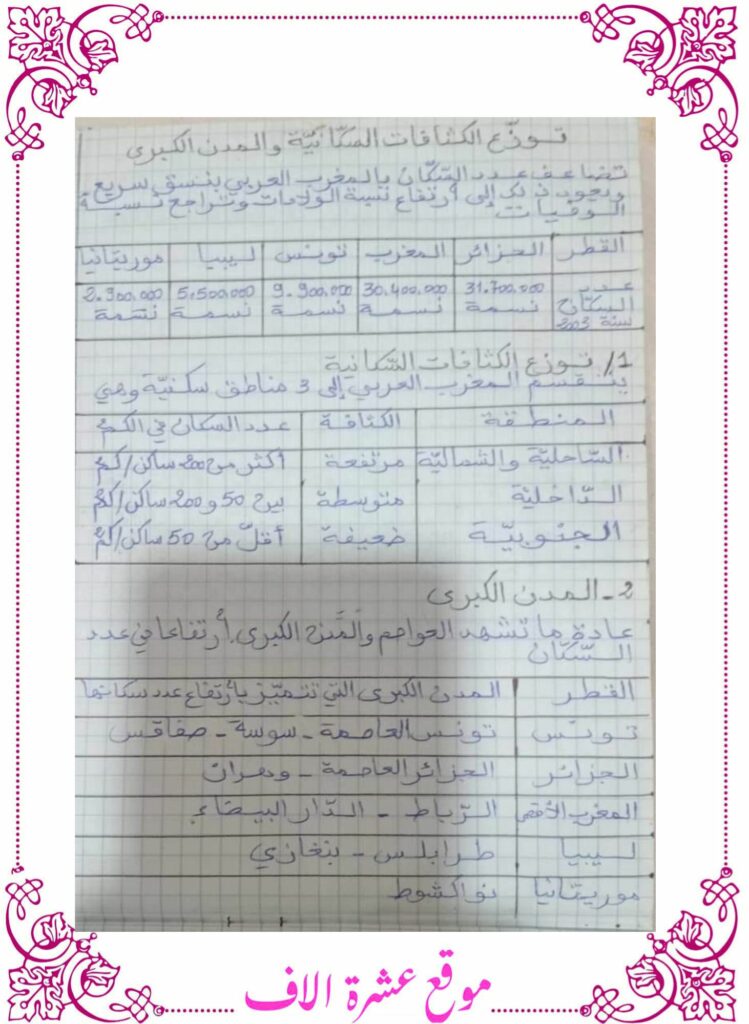 توزّع الكثافات السكّانيّة والمدن الكبرى
تضاعف عدد السّكّان بالمغرب العربي بنسق سريع
ويعود ذلك إلى أرتفاع نسبة الولادات وتراجع نسبة
الوفيات
القطر الجزائر المغرب تونس ليبيا موريتانيا
عدد السكّان سنة 2003 31.700.000 نسمة 30.400.000 نسمة 9.900.000 نسمة 5.500.000 نسمة 2.900.000 نسمة
1/ توزع الكثافات السّكانية
ينقسم المغرب العربي إلى 3 مناطق سكنيّة وهي
المنطقة الكثافة عدد السكان في الكم²
السّاحليّة والشماليّة مرتفعة أكثر من 200 ساكن/كم²
الدّاخليّة متوسطة بين 50 و 200 ساكن/كم²
الجنوبيّة ضعيفة أقلّ من 50 ساكن/كم²
2 - المدن الكبرى
عادة ما تشهد العواصم والمدن الكبرى أرتفاعا في عدد
السّكّان
القطر المدن الكبرى التي تتميّز بأرتفاع عدد سكانها
تونس تونس العاصمة - سوسة - صفاقس
الجزائر الجزائر العاصمة - وهران
المغرب الأقصى الرّباط - الدّار البيضاء
ليبيا طرابلس - بنغازي
موريتانيا نواكشوط
موقع عشرة الاف